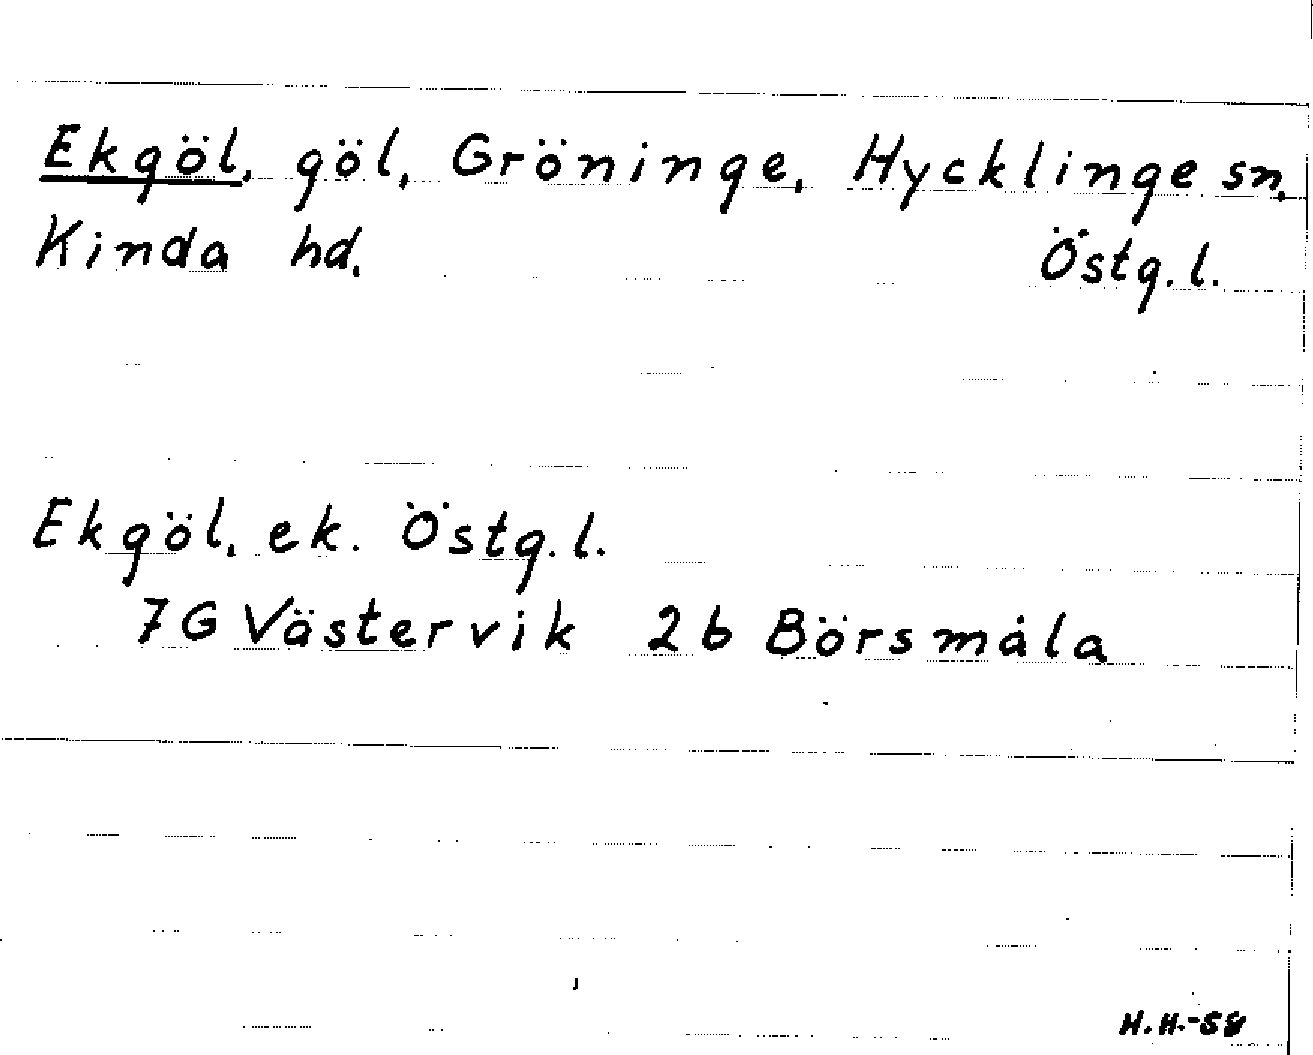 Ekgöl, göl, Gröninge, Hycklinge sn,
Kinda hd. Östg.l.
Ekgöl, ek. Östg.l.
7G Västervik 2b Börsmåla
H.H.-58